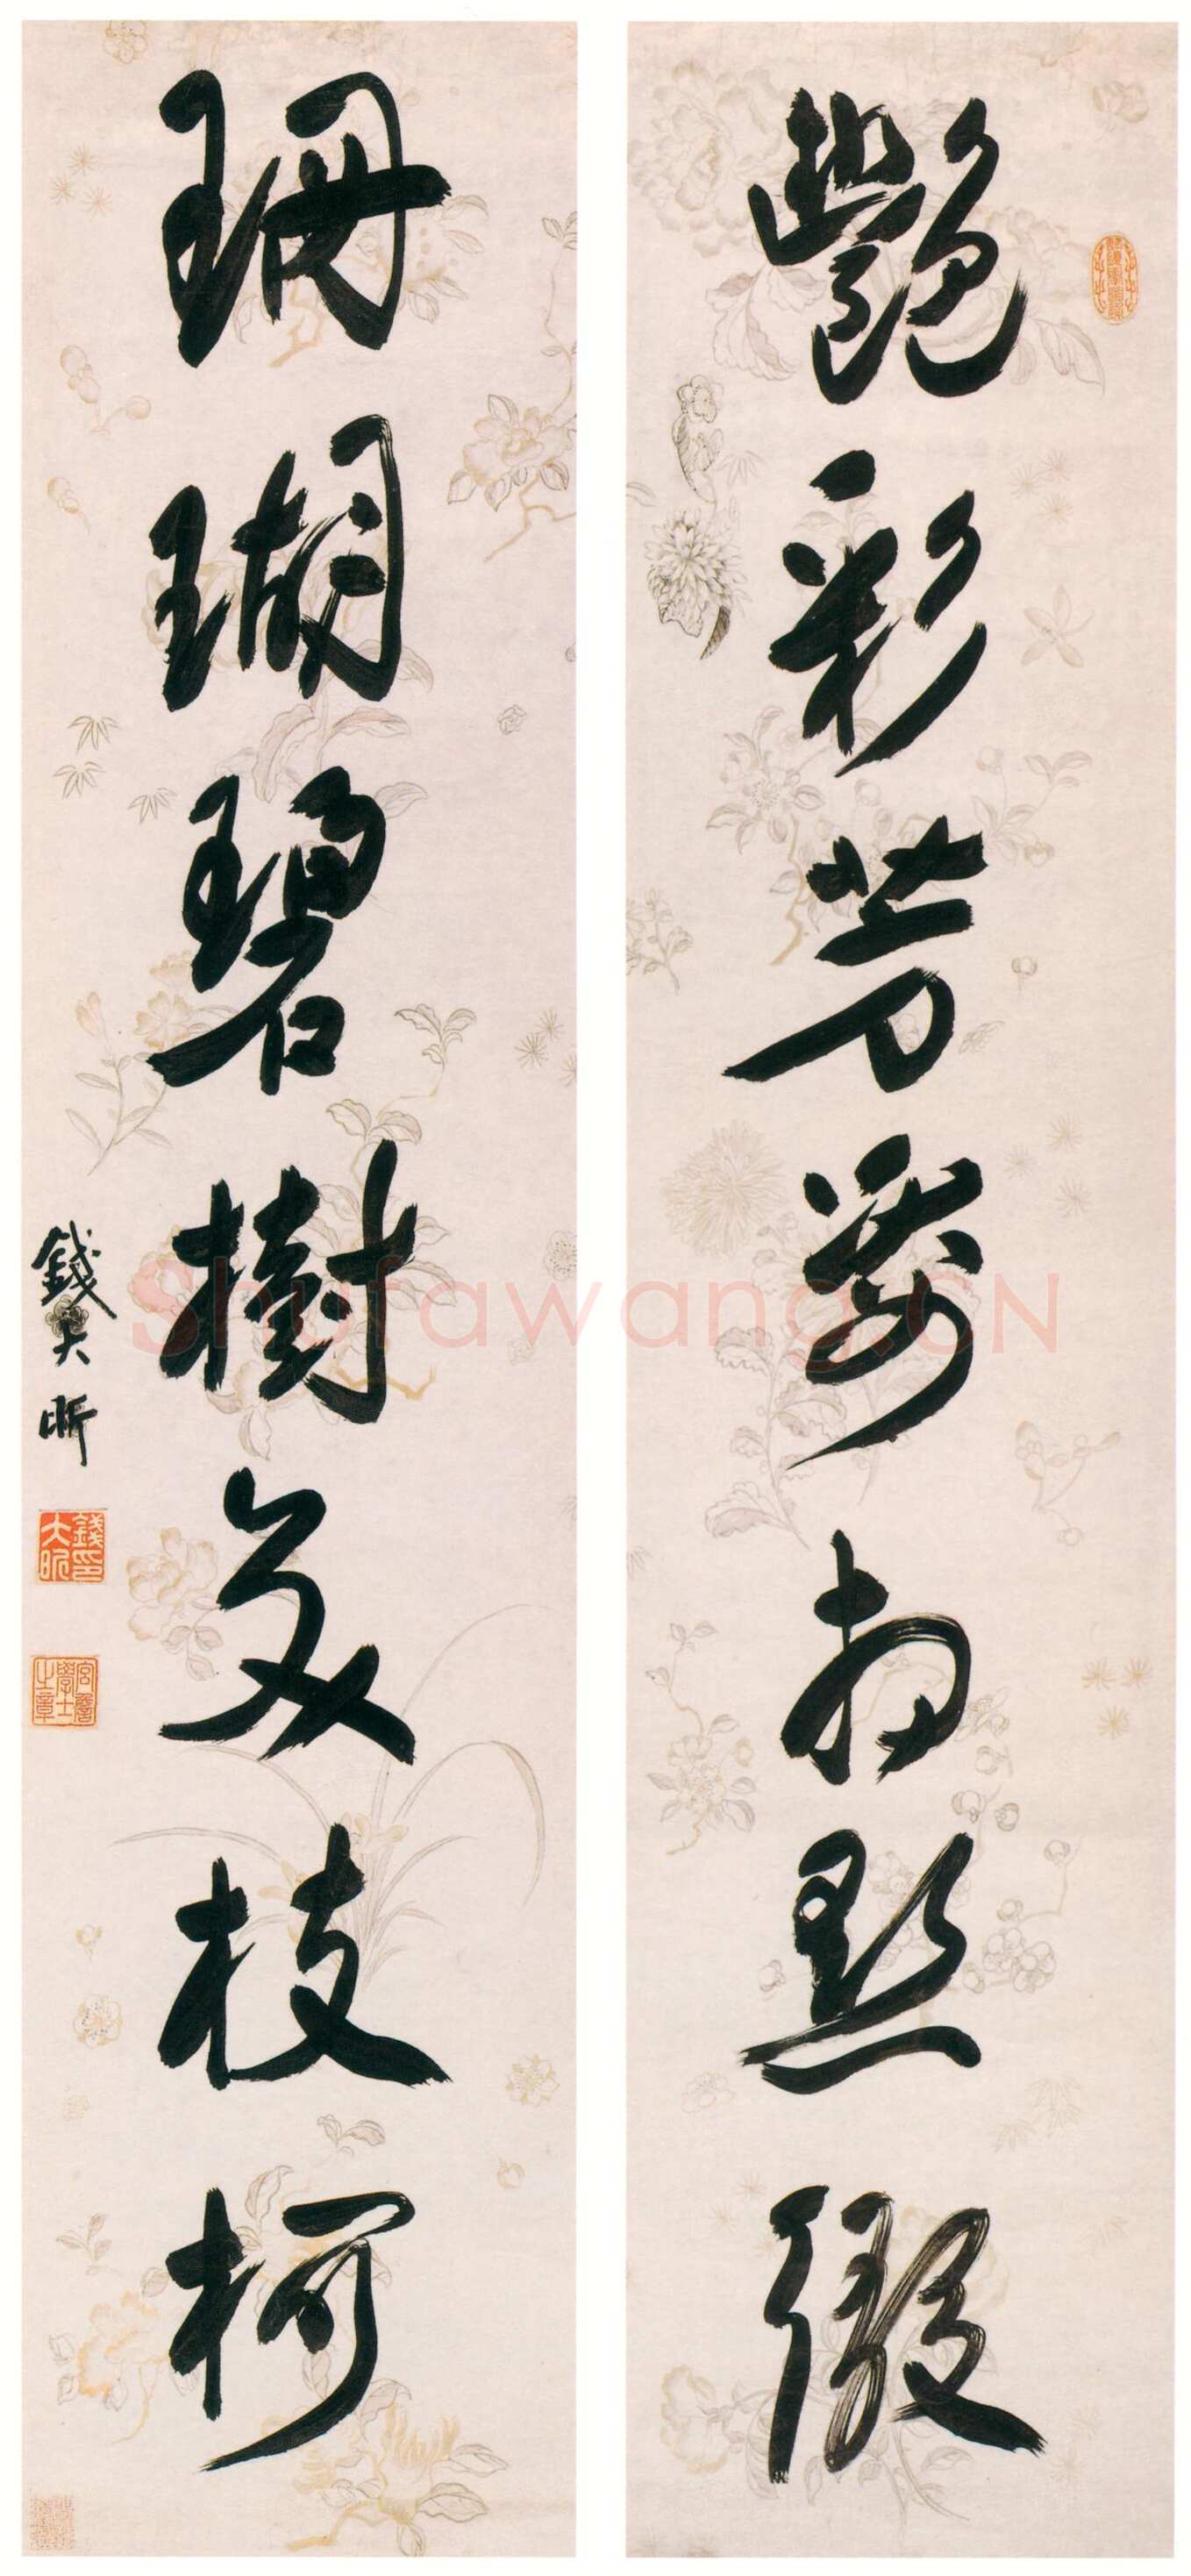 艷彩芳姿相點綴
珊瑚碧樹交枝柯
錢大昕
錢印大昕
宮詹學士之章
Shufawang.CN